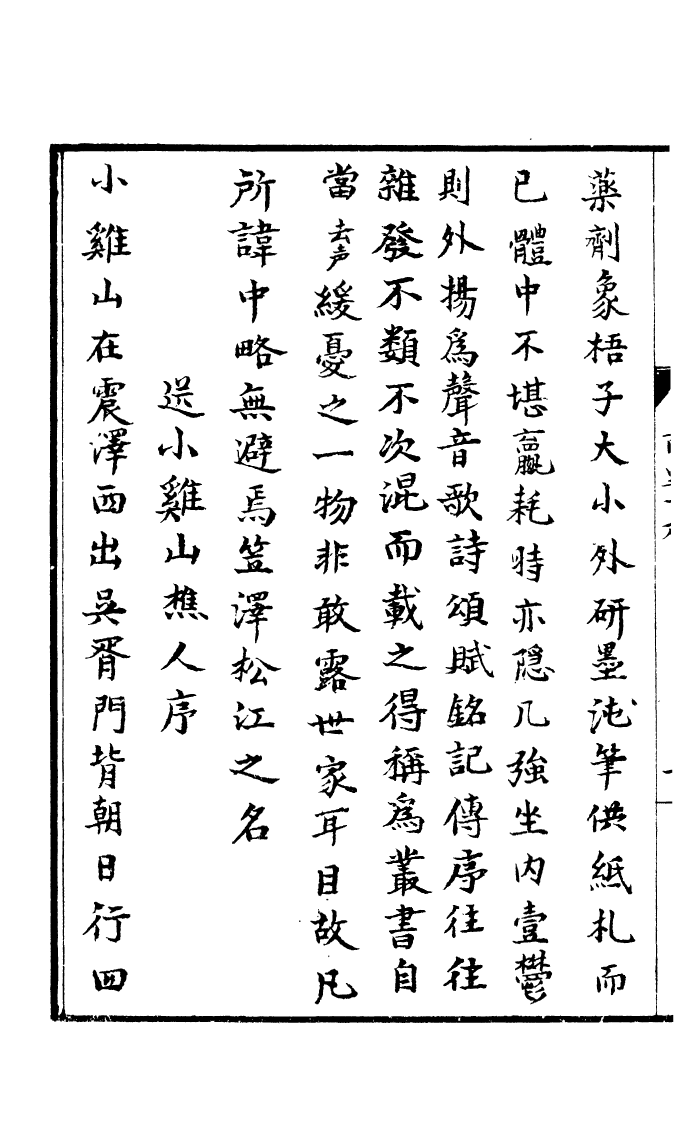 藥劑象梧子大小外研墨泚筆供紙札而
已體中不堪羸耗時亦隱几強坐内壹鬱
則外揚爲聲音歌詩頌賦銘記傳序往往
雜發不類不次混而載之得稱爲叢書自
當去声緩憂之一物非敢露世家耳目故凡
所諱中略無避焉笠澤松江之名
送小雞山樵人序
小雞山在震澤西出吳胥門背朝日行四